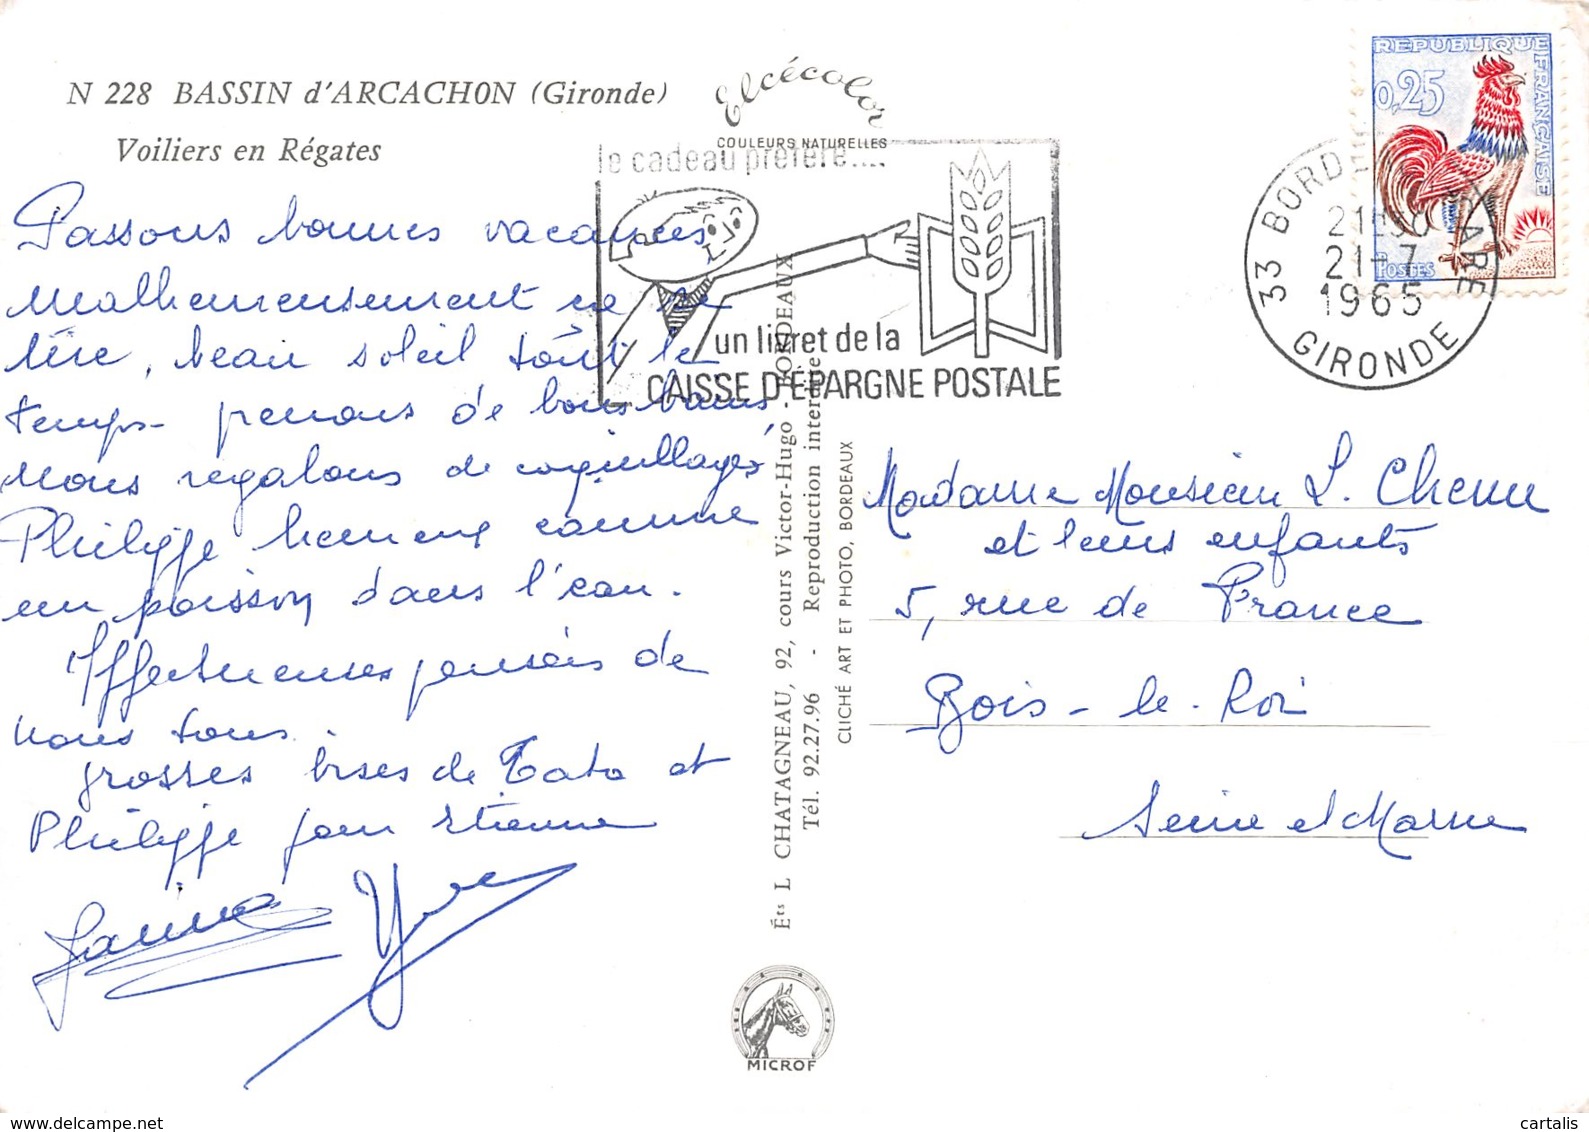 N 228 BASSIN d'ARCACHON (Gironde)
Voiliers en Régates
Elcécolor
COULEURS NATURELLES
le cadeau préféré....
un livret de la
CAISSE D'EPARGNE POSTALE
REPUBLIQUE FRANÇAISE
0,25
POSTES
33 BORDEAUX GARE
21-7
1965
GIRONDE
Passons bonnes vacances
malheureusement ca se
tire, beau soleil tout le
temps - prenons de bons bains
nous regalons de coquillages
Philippe heureux comme
un poisson dans l'eau.
Affectueuses pensées de
nous tous.
grosses bises de Tata et
Philippe pour Etienne
Janine Yves
Éts L CHATAGNEAU, 92, cours Victor-Hugo - BORDEAUX
Tél. 92.27.96 - Reproduction interdite
CLICHÉ ART ET PHOTO, BORDEAUX
MICROF
Madame Monsieur L. Chenu
et leurs enfants
5, rue de France
Bois-le-Roi
Seine et Marne
cartalis
www.delcampe.net